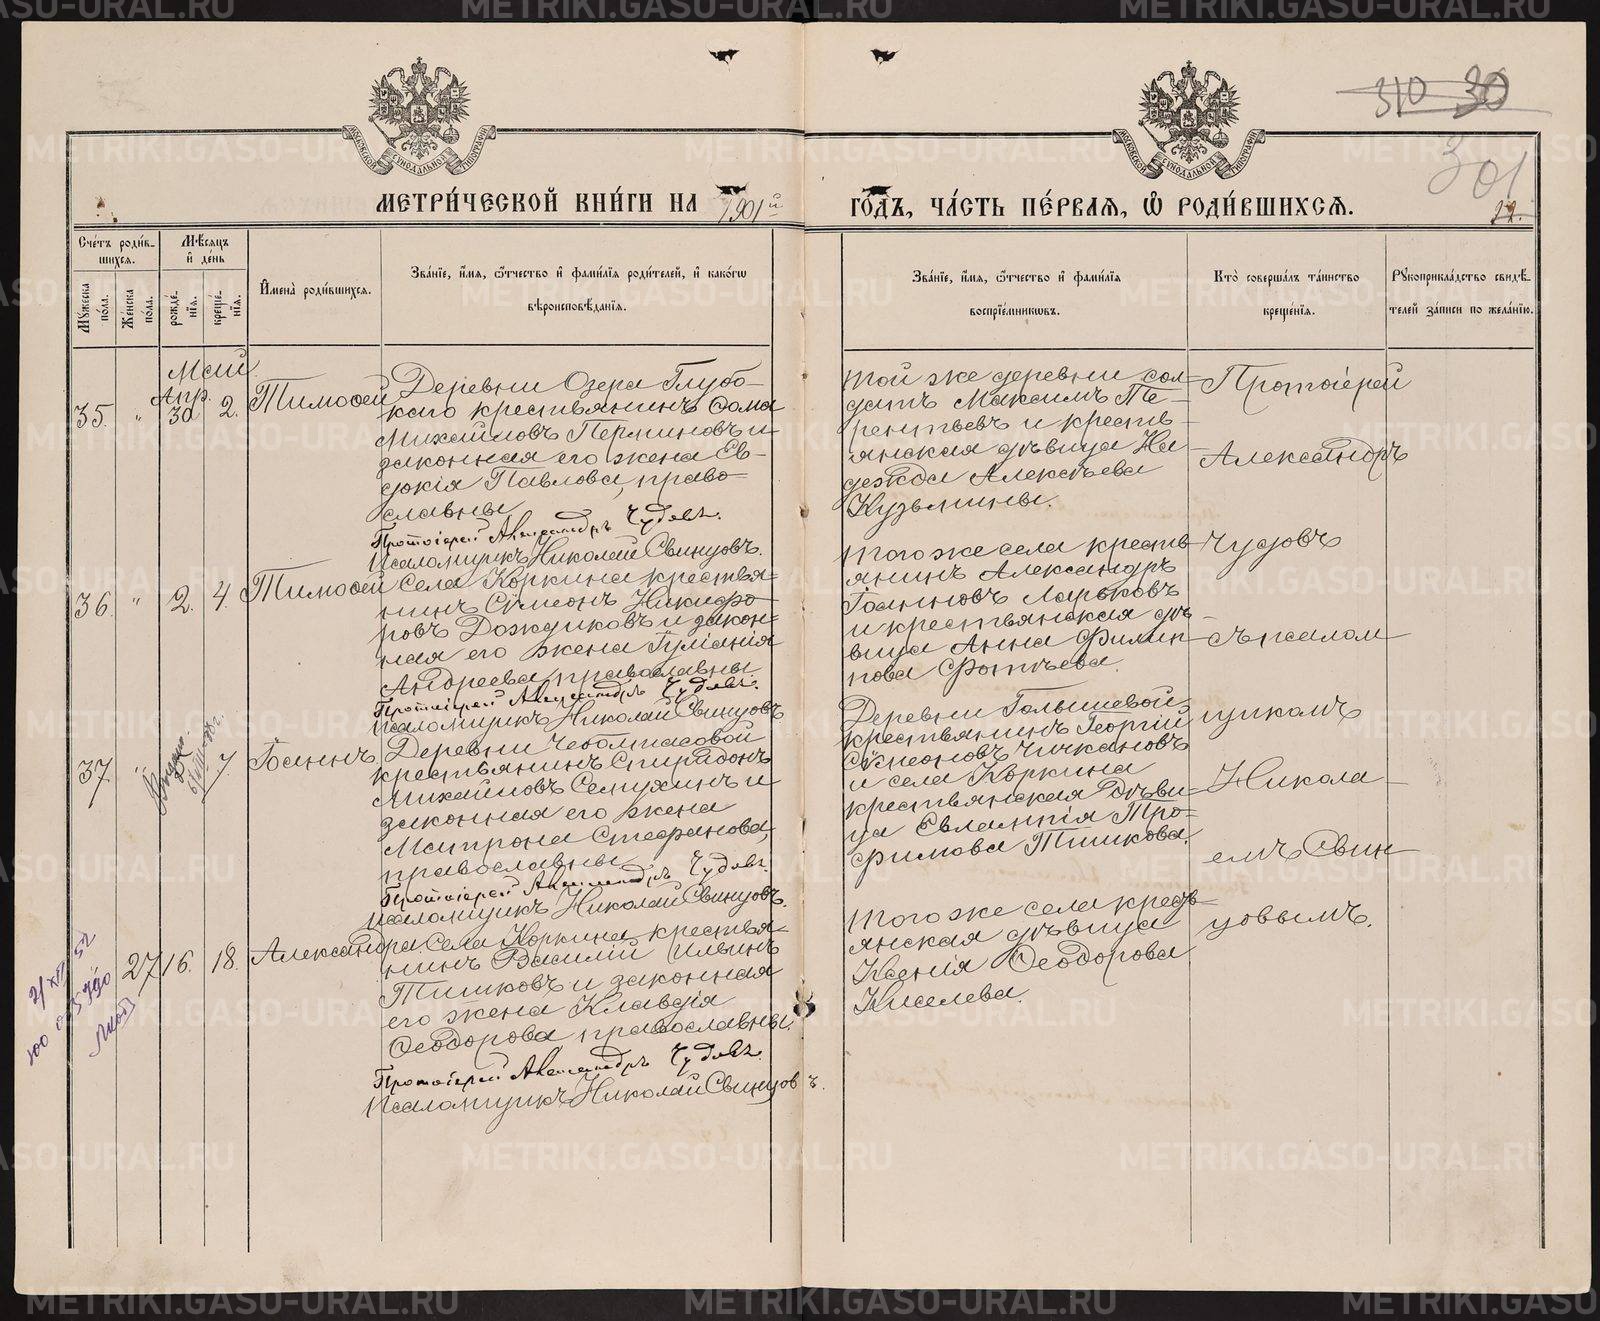 METRIKI.GASO-URAL.RU
310 30
301
МЕТРИ́ЧЕСКОЙ КНИ́ГИ НА 1901й
ГО́ДЪ, ЧА́СТЬ ПЕ́РВАЯ, Ѡ РОДИ́ВШИХСЯ.
22.
МОСКОВСКОЙ СУНОДАЛЬНОЙ ТИПОГРАФІИ
МОСКОВСКОЙ СУНОДАЛЬНОЙ ТИПОГРАФІИ
Сче́тъ роди́в-
шихся.
Мѣ́сяцъ
и҆ де́нь
Му́жеска
по́ла.
Же́нска
по́ла.
рожде́-
нїя.
креще́-
нїя.
И҆мена̀ роди́вшихся.
Зва́нїе, и҆́мя, ѻ҆́тчество и҆ фами́лїя роди́телей, и҆ како́гѡ
вѣроисповѣ́данїя.
Зва́нїе, и҆́мя, ѻ҆́тчество и҆ фами́лїя
воспрїе́мникѡвъ.
Кто̀ соверша́лъ та́инство
креще́нїя.
Рꙋкоприкла́дство свидѣ́-
телей за́писи по жела́нїю.
Май
35. " Апр. 30 2. Тимоѳей
Деревни Озера Глубо-
каго крестьянинъ Ѳома
Михайловъ Перминовъ и
законная его жена Ев-
докія Павлова, право-
славны
Протоіерей Александръ Чудовъ.
Псаломщикъ Николай Свинцовъ.
Той же деревни сол-
датъ Максимъ Те-
рентьевъ и кресть-
янская дѣвица На-
дежда Алексѣева
Кузьмины.
Протоіерей
Александръ
36. " 2. 4. Тимоѳей
Села Коркина крестья-
нинъ Сѵмеонъ Никифо-
ровъ Дождиковъ и закон-
ная его жена Гуліанія
Андреева, православны
Протоіерей Александръ Чудовъ.
Псаломщикъ Николай Свинцовъ
Того же села кресть-
янинъ Александръ
Іоанновъ Ларьковъ
и крестьянская дѣ-
вица Анна Филип-
пова Фотѣева.
Чудовъ
съ псалом-
37. " 7 Іоаннъ
Деревни Чеботасовой
крестьянинъ Спиридонъ
Михайловъ Семухинъ и
законная его жена
Матрона Стефанова,
православны
Протоіерей Александръ Чудовъ.
Псаломщикъ Николай Свинцовъ.
Деревни Голышевой
крестьянинъ Георгій
Сѵмеоновъ Чичкановъ
и села Коркина
крестьянская дѣви-
ца Евлампія Тро-
фимова Тишкова.
щикомъ
Никола-
емъ Свин-
27 16. 18. Александра
Села Коркина крестья-
нинъ Василій Ильинъ
Тишковъ и законная
его жена Клавдія
Ѳеодорова православны.
Протоіерей Александръ Чудовъ.
Псаломщикъ Николай Свинцовъ.
Того же села кресть-
янская дѣвица
Ксенія Ѳеодорова
Киселева.
цовымъ.